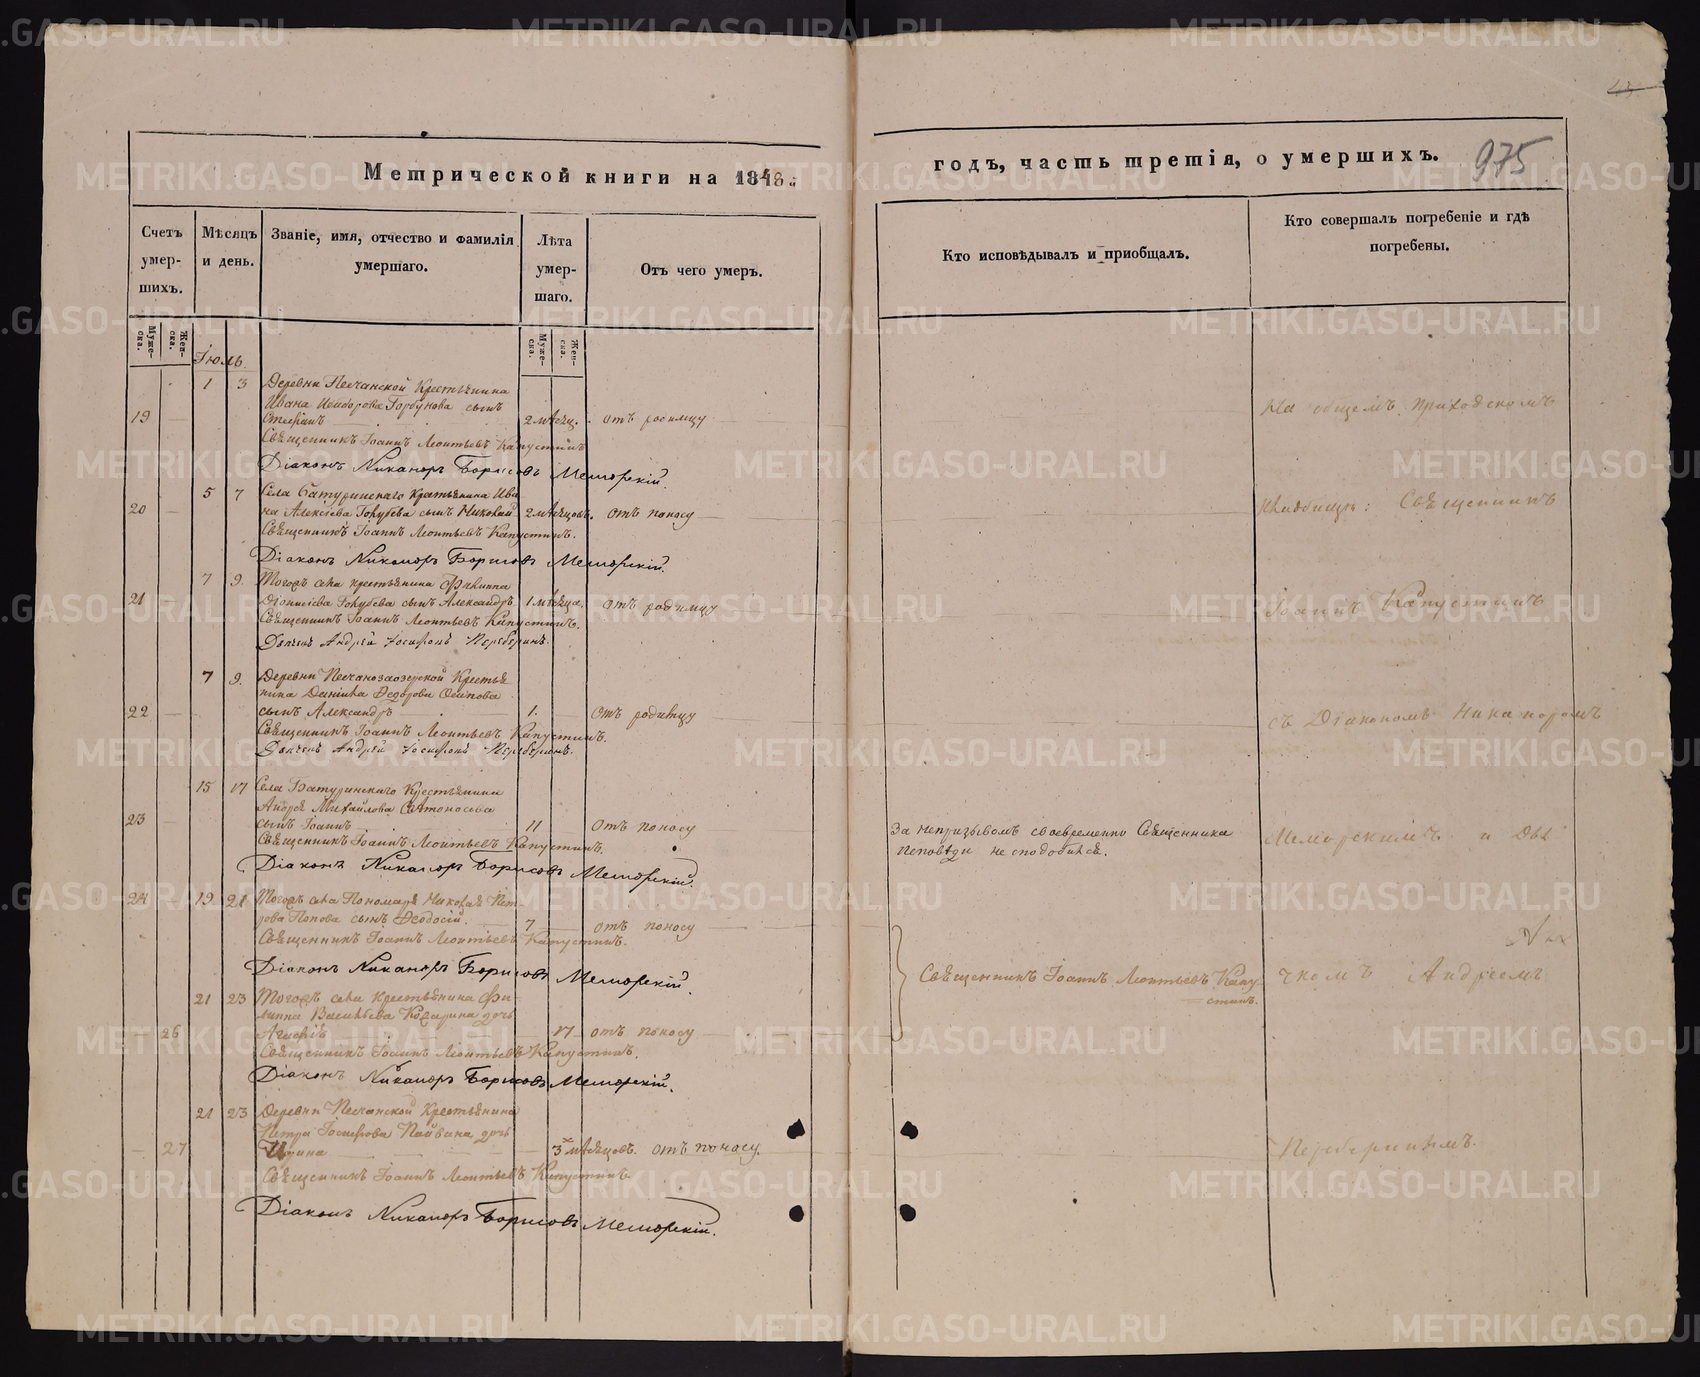 Метрической книги на 1848й
Счетъ умер-шихъ.
Муже-ска.
Жен-ска.
Мѣсяцъ и день.
Званіе, имя, отчество и фамилія умершаго.
Лѣта умер-шаго.
Муже-ска.
Жен-ска.
Отъ чего умеръ.
Іюль
1 3 Деревни Песчанской Крестьянина
Ивана Исидорова Горбунова сынъ
19 — 2 мѣсяц. отъ родимцу
Священникъ Іоаннъ Леонтьевъ Капустинъ
Діаконъ Никаноръ Борисовъ Меморскій.
5 7 Села Батуринскаго Крестьянина Ива
20 — на Алексѣева Голубева сынъ Николай 2 мѣсяцовъ. отъ поносу
Священникъ Іоаннъ Леонтьевъ Капустинъ.
Діаконъ Никаноръ Борисовъ Меморскій.
7 9. Тогожъ села крестьянина Филиппа
21 — Діонисіева Голубева сынъ Александръ 1 мѣсяца. отъ родимцу
Священникъ Іоаннъ Леонтьевъ Капустинъ.
Дьячекъ Андрей Іосифовъ Переберинъ.
7 9. Деревни Песчанозаозерской Крестья
нина Даніила Ѳедорова Осипова
22 — сынъ Александръ — 1. — отъ родимцу
Священникъ Іоаннъ Леонтьевъ Капустинъ.
Дьячекъ Андрей Іосифовъ Переберинъ.
15 17 Села Батуринскаго Крестьянина
Андрея Михайлова Святоносова
23 — сынъ Іоаннъ — 11 — отъ поносу
Священникъ Іоаннъ Леонтьевъ Капустинъ.
Діаконъ Никаноръ Борисовъ Меморскій.
24 — 19 21 Тогожъ села Пономаря Николая Пет
рова Попова сынъ Ѳеодосій. — 7 — отъ поносу
Священникъ Іоаннъ Леонтьевъ Капустинъ.
Діаконъ Никаноръ Борисовъ Меморскій.
21 23 Тогожъ села крестьянина Фи-
липпа Васильева дочь
— 26 — 17 — отъ поносу
Священникъ Іоаннъ Леонтьевъ Капустинъ.
Діаконъ Никаноръ Борисовъ Меморскій.
21 23 Деревни Песчанской Крестьянина
Петра Іосифова Пайвина дочь
— 27 Ирина — 3 мѣсяцовъ. отъ поносу.
Священникъ Іоаннъ Леонтьевъ Капустинъ.
Діаконъ Никаноръ Борисовъ Меморскій.
годъ, часть третія, о умершихъ.
975
Кто исповѣдывалъ и пріобщалъ.
Кто совершалъ погребеніе и гдѣ погребены.
На общемъ приходскомъ
кладбищѣ: Священникъ
Іоаннъ Капустинъ
съ Діакономъ Никаноромъ
За непризывомъ своевременно Священника
исповѣди не сподобился.
Меморскимъ и Дья
Священникъ Іоаннъ Леонтьевъ Капу-
стинъ.
чкомъ Андреемъ
Переберинымъ.
METRIKI.GASO-URAL.RU